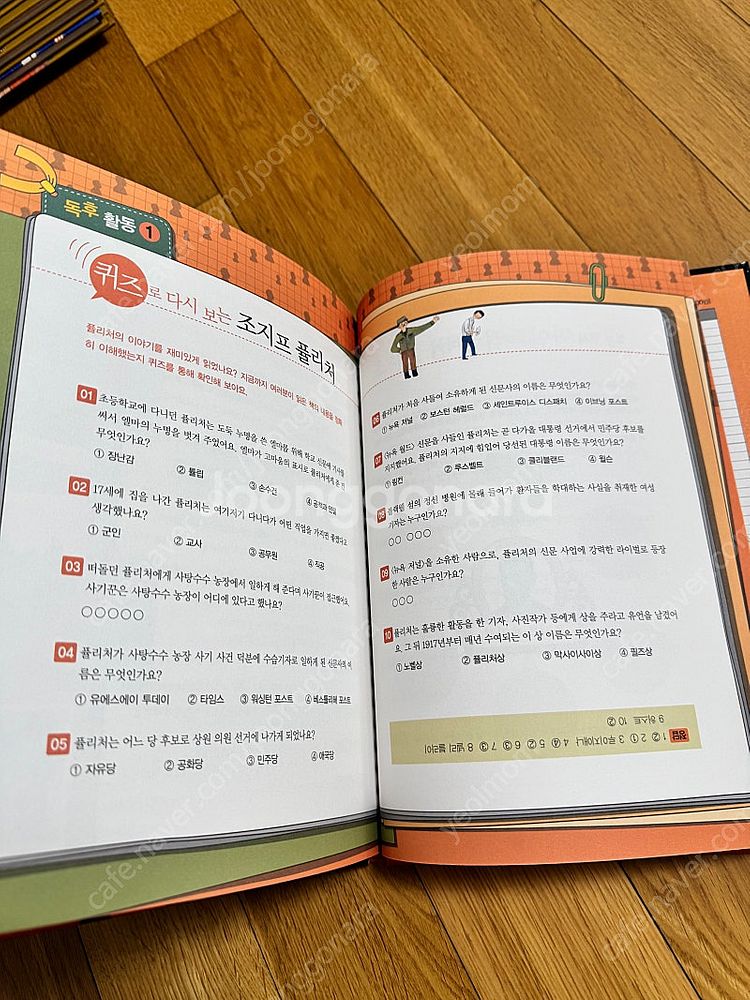 독후 활동 1
퀴즈로 다시 보는 조지프 퓰리처
퓰리처의 이야기를 재미있게 읽었나요? 지금까지 여러분이 읽은 책의 내용을 정확
히 이해했는지 퀴즈를 통해 확인해 보아요.
01 초등학교에 다니던 퓰리처는 도둑 누명을 쓴 엘마를 위해 학교 신문에 기사를
써서 엘마의 누명을 벗겨 주었어요. 엘마가 고마움의 표시로 퓰리처에게 준 것은
무엇인가요?
① 장난감 ② 튤립 ③ 손수건 ④ 공책과 연필
02 17세에 집을 나간 퓰리처는 여기저기 다니다가 어떤 직업을 가지면 좋겠다고
생각했나요?
① 군인 ② 교사 ③ 공무원 ④ 직공
03 떠돌던 퓰리처에게 사탕수수 농장에서 일하게 해 준다며 사기꾼이 접근했어요.
사기꾼은 사탕수수 농장이 어디에 있다고 했나요?
○○○○○
04 퓰리처가 사탕수수 농장 사기 사건 덕분에 수습기자로 일하게 된 신문사의 이
름은 무엇인가요?
① 유에스에이 투데이 ② 타임스 ③ 워싱턴 포스트 ④ 베스틀리헤 포스트
05 퓰리처는 어느 당 후보로 상원 의원 선거에 나가게 되었나요?
① 자유당 ② 공화당 ③ 민주당 ④ 애국당
06 퓰리처가 처음 사들여 소유하게 된 신문사의 이름은 무엇인가요?
① 뉴욕 저널 ② 보스턴 헤럴드 ③ 세인트루이스 디스패치 ④ 이브닝 포스트
07 〈뉴욕 월드〉 신문을 사들인 퓰리처는 곧 다가올 대통령 선거에서 민주당 후보를
지지했어요. 퓰리처의 지지에 힘입어 당선된 대통령 이름은 무엇인가요?
① 링컨 ② 루스벨트 ③ 클리블랜드 ④ 윌슨
08 블랙웰 섬의 정신 병원에 몰래 들어가 환자들을 학대하는 사실을 취재한 여성
기자는 누구인가요?
○○ ○○○
09 〈뉴욕 저널〉을 소유한 사람으로, 퓰리처의 신문 사업에 강력한 라이벌로 등장
한 사람은 누구인가요?
○○○
10 퓰리처는 훌륭한 활동을 한 기자, 사진작가 등에게 상을 주라고 유언을 남겼어
요. 그 뒤 1917년부터 매년 수여되는 이 상 이름은 무엇인가요?
① 노벨상 ② 퓰리처상 ③ 막사이사이상 ④ 필즈상
정답 1 ② 2 ① 3 루이지애나 4 ④ 5 ② 6 ③ 7 ③ 8 넬리 블라이
9 허스트 10 ②
joonggonara
cafe.naver.com/joonggonara
yeolmom